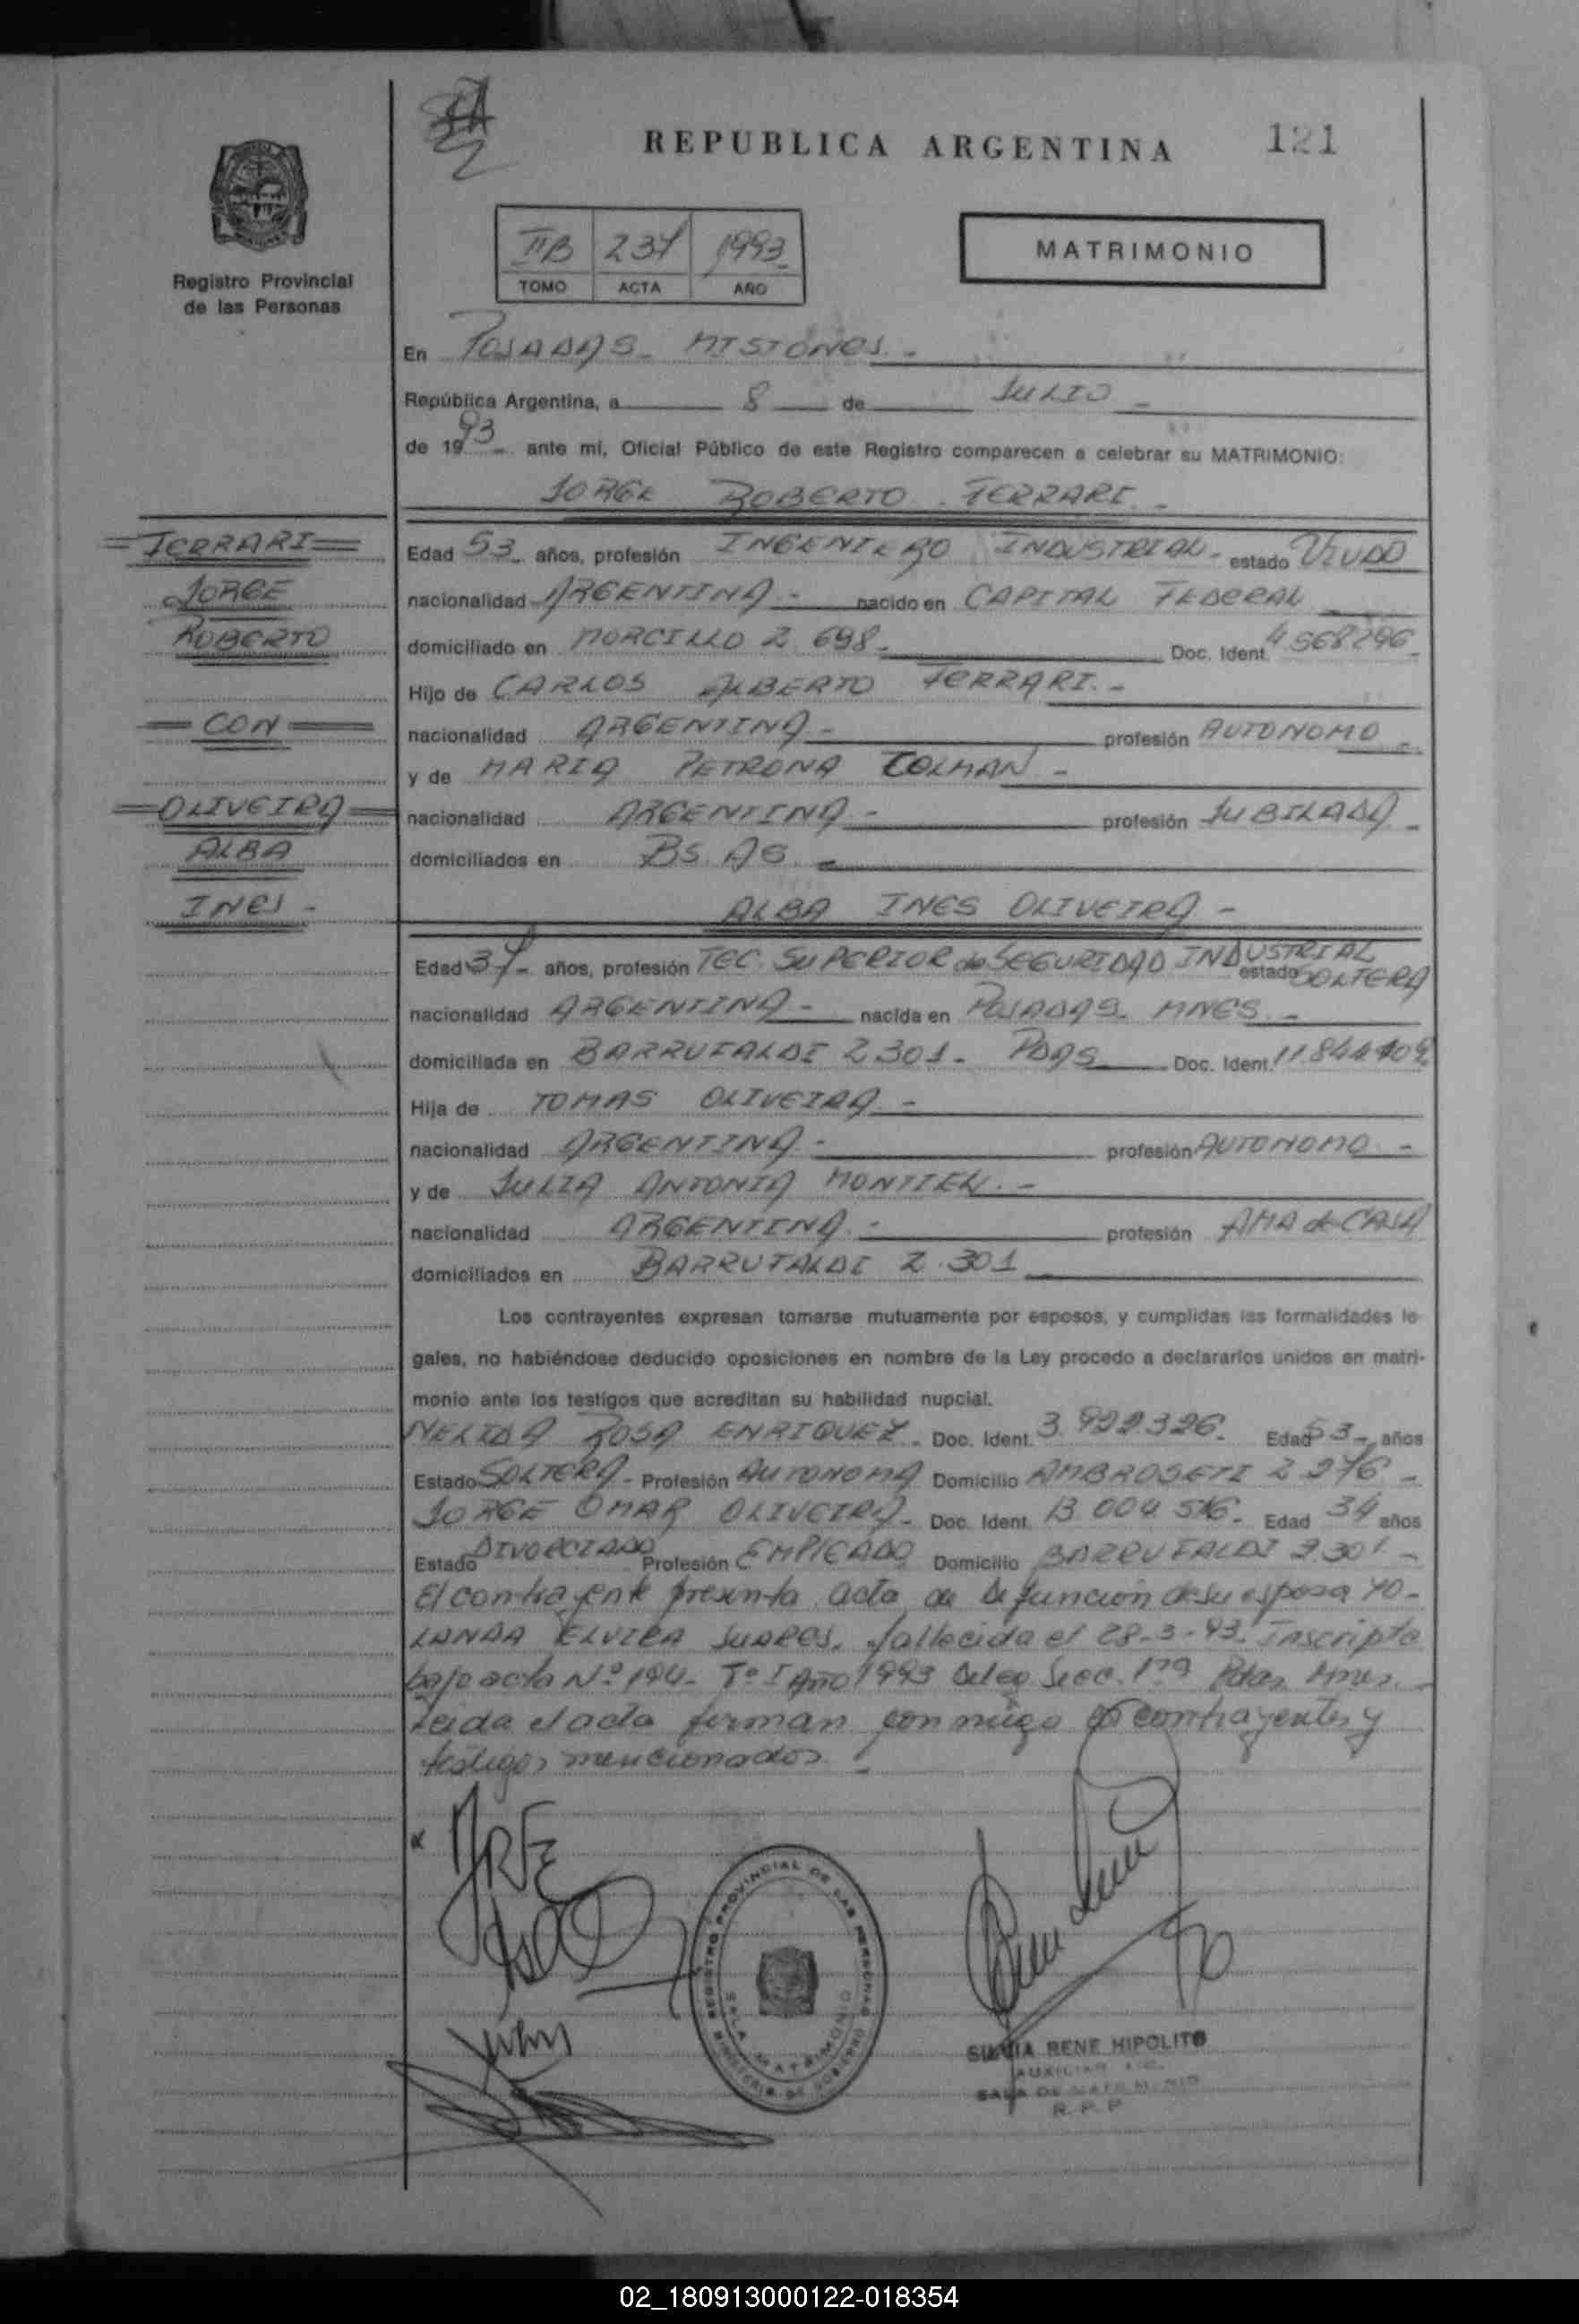 REPUBLICA ARGENTINA
121
Registro Provincial
de las Personas
IIB 237 1993
TOMO ACTA AÑO
MATRIMONIO
En POSADAS - MISIONES -
República Argentina, a 8 de JULIO -
de 1993 - ante mi, Oficial Público de este Registro comparecen a celebrar su MATRIMONIO:
JORGE ROBERTO FERRARI -
FERRARI
JORGE
ROBERTO
CON
OLIVEIRA
ALBA
INES -
Edad 53 años, profesión INGENIERO INDUSTRIAL - estado VIUDO
nacionalidad ARGENTINA - nacido en CAPITAL FEDERAL
domiciliado en MORCILLO 2698 - Doc. Ident. 4568296
Hijo de CARLOS ALBERTO FERRARI -
nacionalidad ARGENTINA - profesión AUTONOMO -
y de MARIA PETRONA COLMAN -
nacionalidad ARGENTINA - profesión JUBILADA -
domiciliados en BS. AS. -
ALBA INES OLIVEIRA -
Edad 37 - años, profesión TEC. SUPERIOR de SEGURIDAD INDUSTRIAL estado SOLTERA
nacionalidad ARGENTINA - nacida en POSADAS - MNES -
domiciliada en BARRUFALDI 2301 - PDAS Doc. Ident.
Hija de TOMAS OLIVEIRA -
nacionalidad ARGENTINA - profesión AUTONOMO -
y de JULIA ANTONIA MONTIEL -
nacionalidad ARGENTINA - profesión AMA de CASA
domiciliados en BARRUFALDI 2301
Los contrayentes expresan tomarse mutuamente por esposos, y cumplidas las formalidades le-
gales, no habiéndose deducido oposiciones en nombre de la Ley procedo a declararlos unidos en matri-
monio ante los testigos que acreditan su habilidad nupcial.
NELIDA ROSA ENRIQUEZ - Doc. Ident. 3.922326 - Edad 53 - años
Estado SOLTERA - Profesión AUTONOMA Domicilio AMBROSETI 2276 -
JORGE OMAR OLIVEIRA - Doc. Ident. 13.004.516 - Edad 34 años
Estado DIVORCIADO Profesión EMPLEADO Domicilio BARRUFALDI 2301 -
El contrayente presenta acta de defunción de su esposa YO-
LANDA ELVIRA SUARES, fallecida el 28-3-93. Inscripta
bajo acta Nº 194 - Tº I Año 1993 Deleg Secc. 1ra Pdas. Mnes. -
Leida el acta firman conmigo los contrayentes y
testigos mencionados -
REGISTRO PROVINCIAL DE LAS PERSONAS
SALA MATRIMONIO
MINISTERIO DE GOBIERNO
SILVIA RENE HIPOLITO
AUXILIAR
SALA DE MATRIMONIO
R. P. P
02_180913000122-018354